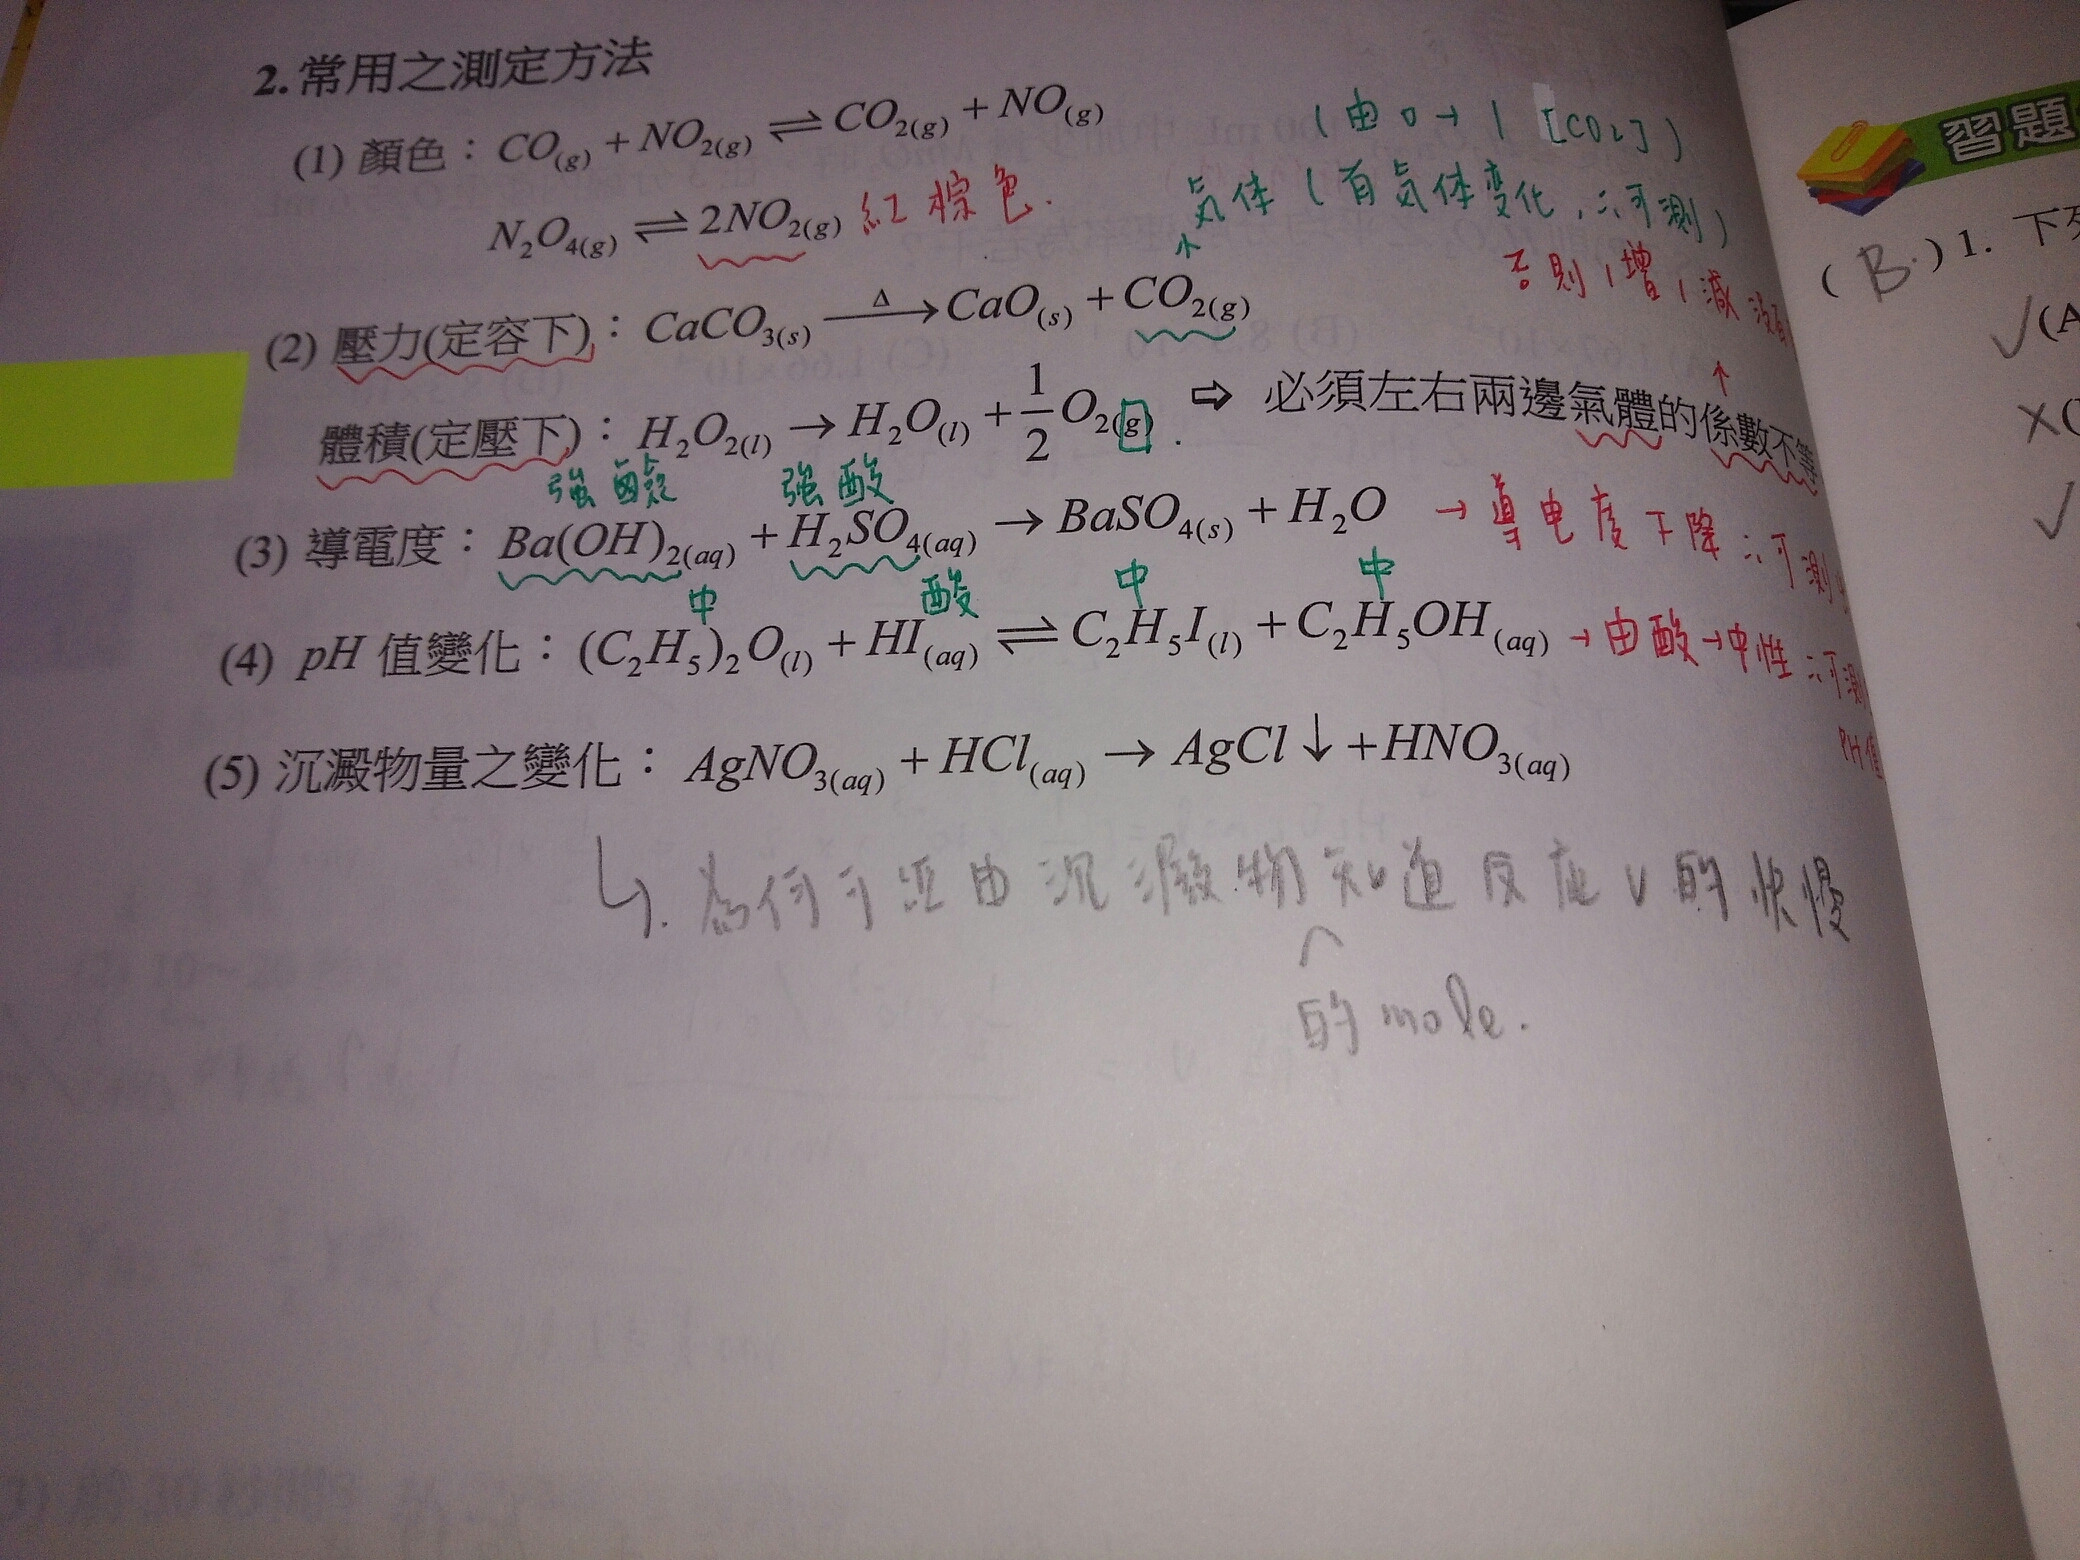 2.常用之測定方法
(1) 顏色：CO(g) + NO2(g) ⇌ CO2(g) + NO(g)
(由0→1 [CO2])
N2O4(g) ⇌ 2NO2(g) 紅棕色.
気体(有気体变化,∴可測)
否則1增1減
(2) 壓力(定容下)：CaCO3(s) —Δ→ CaO(s) + CO2(g)
體積(定壓下)：H2O2(l) → H2O(l) + 1/2 O2(g). ⇨ 必須左右兩邊氣體的係數不等
強鹼 強酸
(3) 導電度：Ba(OH)2(aq) + H2SO4(aq) → BaSO4(s) + H2O → 導电度下降∴可測
中 酸 中 中
(4) pH 值變化：(C2H5)2O(l) + HI(aq) ⇌ C2H5I(l) + C2H5OH(aq) → 由酸→中性∴可測
PH值
(5) 沉澱物量之變化：AgNO3(aq) + HCl(aq) → AgCl↓ + HNO3(aq)
↳. 為何可經由沉澱物知道反應v的快慢
的mole.
習題
(B.) 1. 下列
✓(A
×(
✓